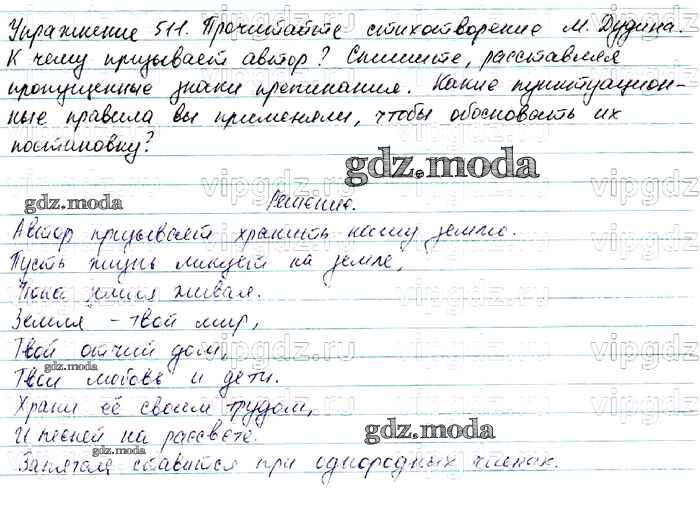 Упражнение 511. Прочитайте стихотворение М. Дудина.
К чему призывает автор? Спишите, расставляя
пропущенные знаки препинания. Какие пунктуацион-
ные правила вы применяли, чтобы обосновать их
постановку?
gdz.moda
gdz.moda
Решение.
Автор призывает хранить нашу землю.
Пусть жизнь ликует на земле,
Пока земля живая.
Земля - твой мир,
Твой отчий дом,
gdz.moda
Твои любовь и дети.
Храни её своим трудом,
И песней на рассвете.
gdz.moda
Запятая ставится при однородных членах.
vipgdz.ru